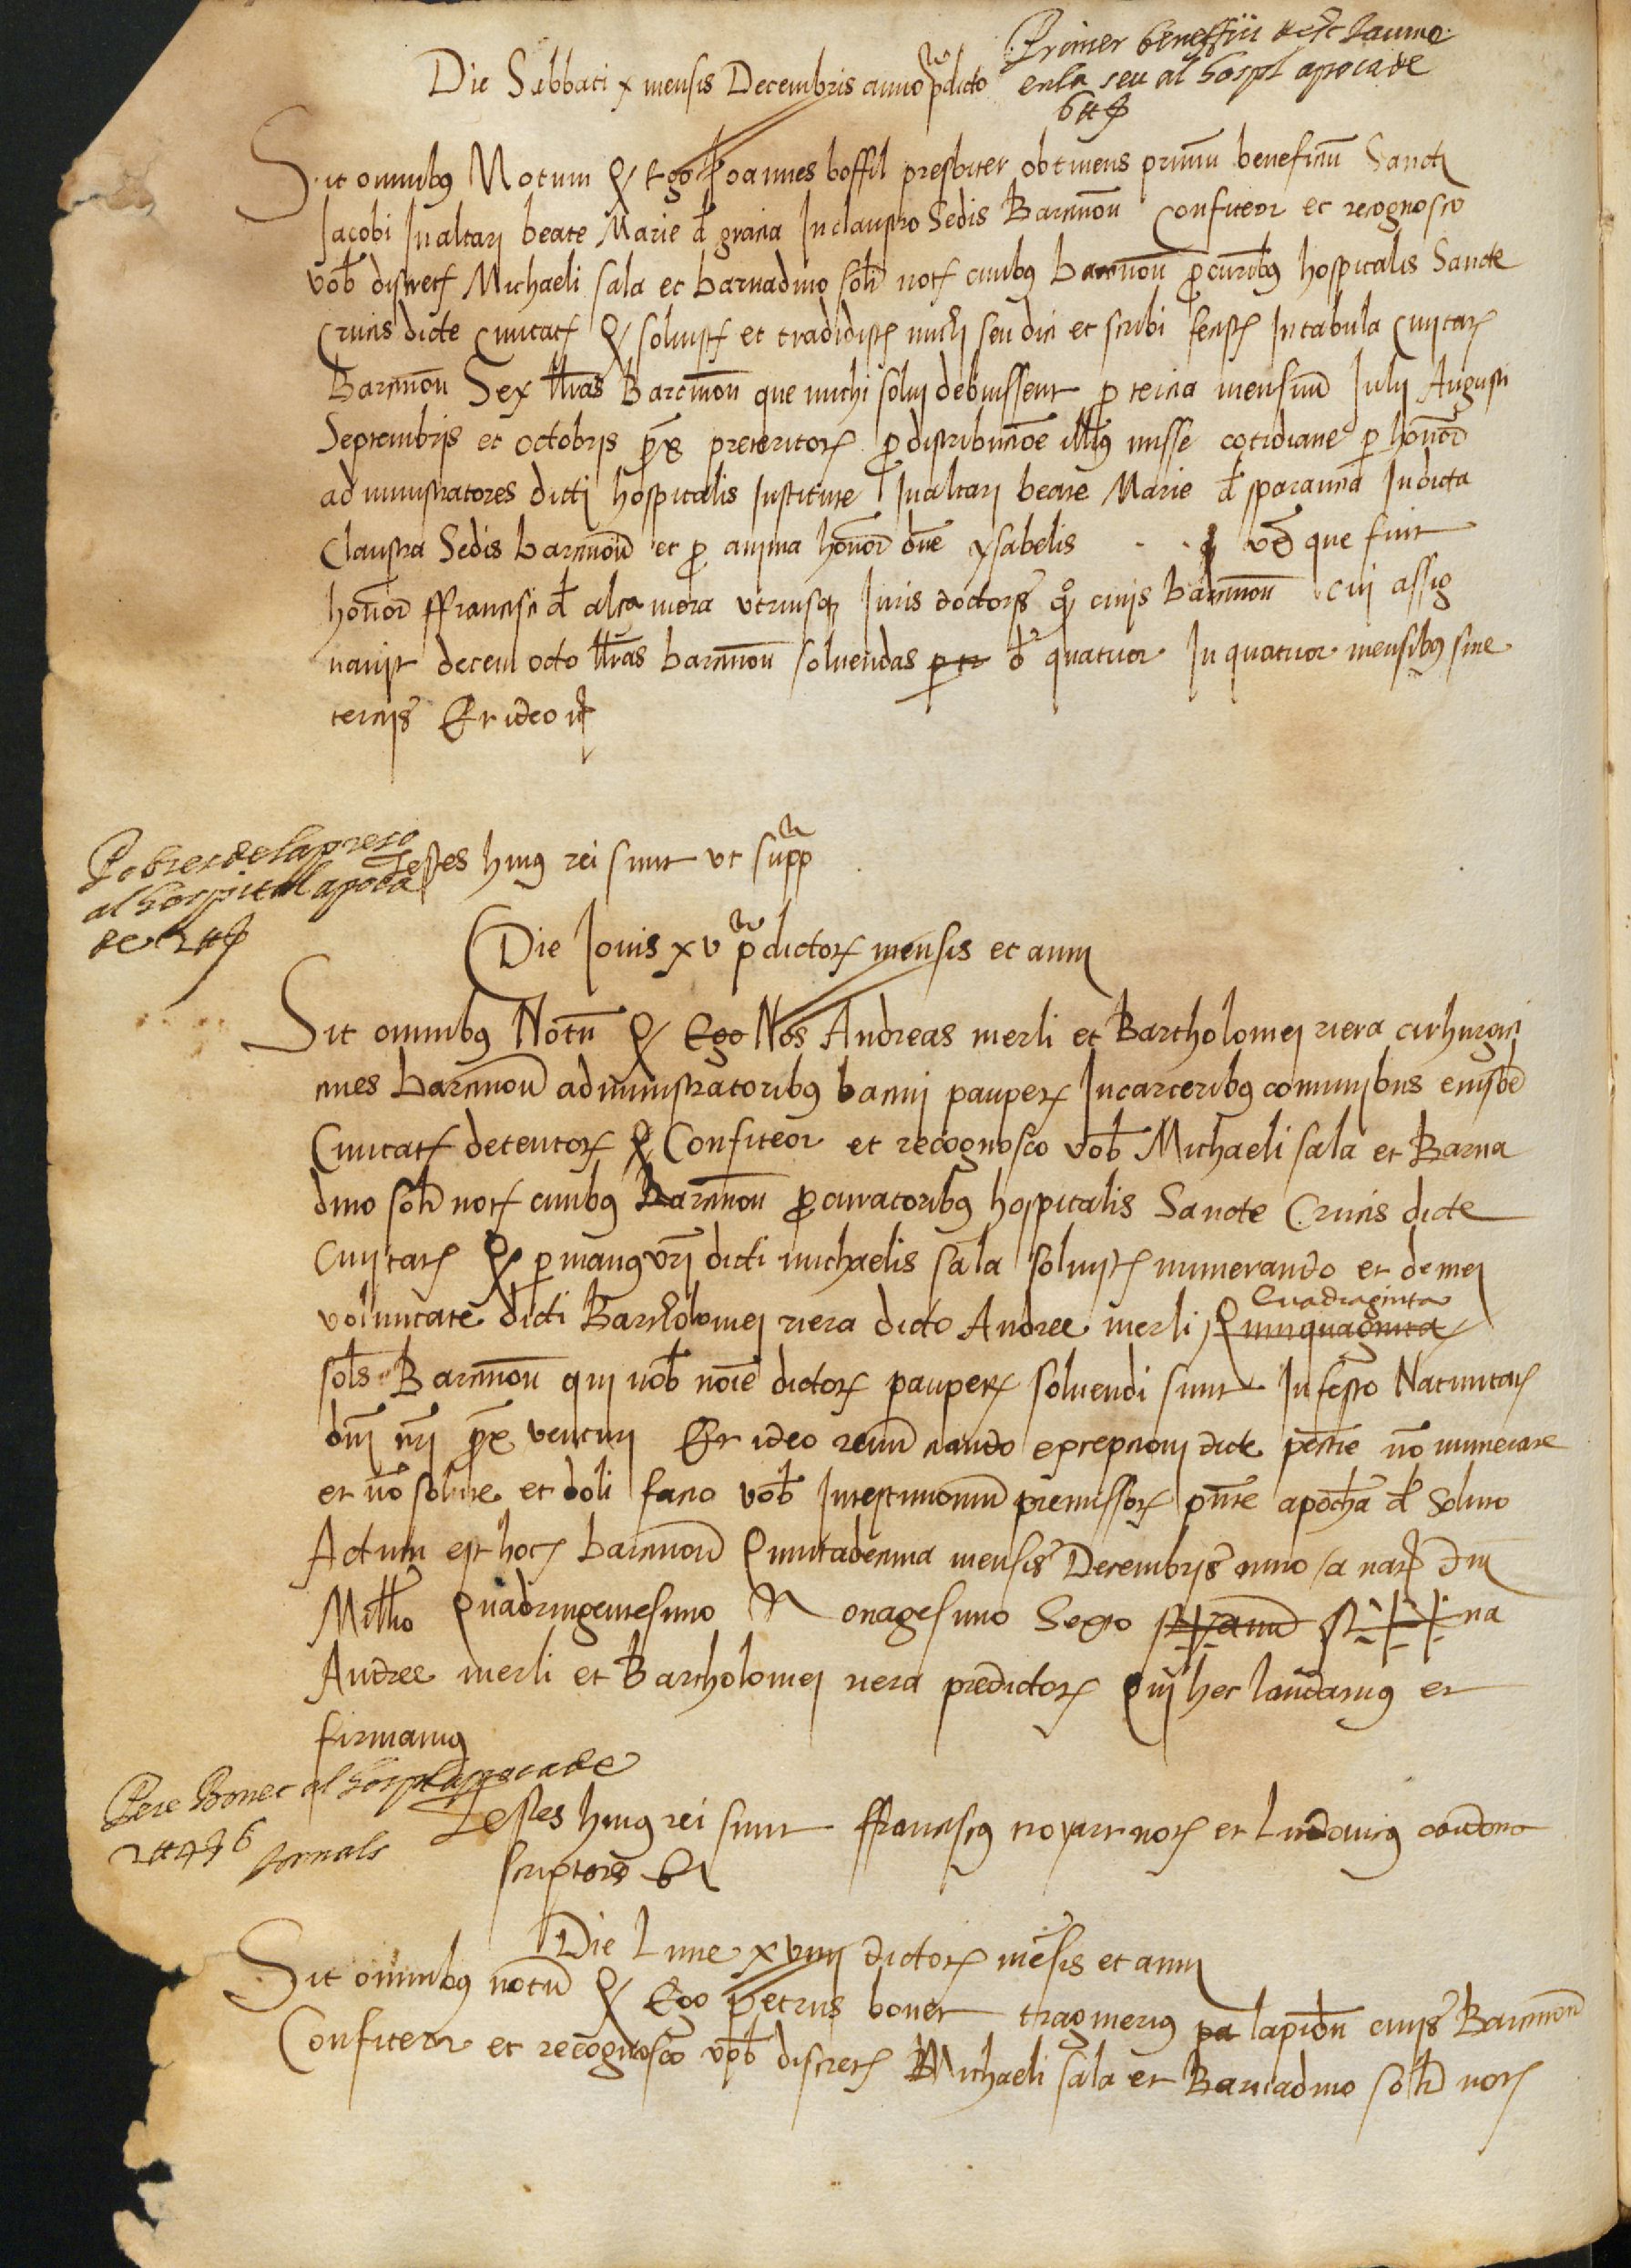 Die Sabbati x mensis Decembris anno pdicto
Primer benefici de St Jaume
en la seu al hospl apoca de
6 ħ
Sit omnibus Notum q Ego Joannes boffil presbiter obtinens primu beneficiu Sancti
Jacobi In altari beate Marie d gracia In claustro Sedis Barcinon Confiteor et recognosco
vob discret Michaeli sala et barnadino not civibus barcinon procuribus hospitalis Sancte
Crucis dicte Civitat q solvist et tradidist michi seu dici et scribi fecist In tabula Civitat
Barcinon Sex lliras Barcinon que michi solvi debuissent p tercia mensium Julii Augusti
Septembris et octobris prox preteritor pro distribucione illius misse cotidiane p honor
administratores dicti hospitalis Institute In altari beate Marie d sparança In dicta
Claustra Sedis barcinon et pro anima honor dne ysabelis . . que fuit
honor ffrancisci d utriusq Juris doctoris q civis barcinon cui assig
navit decem octo lliras barcinon solvendas p d quatuor In quatuor mensibus sive
terciis Et ideo
Pobres de la preso
al hospital apoca
de 2 ħ
Testes huius rei sunt ut supp
Die Jovis xv pdictor mensis et anni
Sit omnibus Notu q Ego Nos Andreas merli et Bartholomei riera cirhurgici
cives barcinon administratoribus bacini pauper In carceribus comunibus eiusde
Civitat detentor q Confiteor et recognosco vob Michaeli sala et Barna
dino not civibus Barcinon procuratoribus hospitalis Sancte Crucis dicte
Civitat q p manus vri dicti michaelis sala solvist numerando et de mei
voluntate dicti Bartholomei riera dicto Andree merli Quinquaginta Cuadraginta
sols Barcinon qui nob noie dictor pauper solvendi sunt In festo Nativitat
dni nri prox venturi Et ideo renunciando excepcioni dicte pecunie no numerate
et no solute et doli facio vob In testimonium premissor pnte apocha d soluto
Actum est hoc barcinon Quintadecima mensis Decembris anno a nat dni
Millo Quadringentesimo Nonagesimo Sexto na
Andree merli et Bartholomei riera predictor Qui hec laudamus et
firmamus
Pere Bonet al hospl apoca de
jornals
Testes huius rei sunt ffranciscus not et Ludovicus
scriptores
Die Lune xviiii dictor mesis et anni
Sit omnibus notu q Ego Petrus bonet traginerius pa lapidu civis Barcinon
Confiteor et recognosco vob discret Michaeli sala et Barnadino not